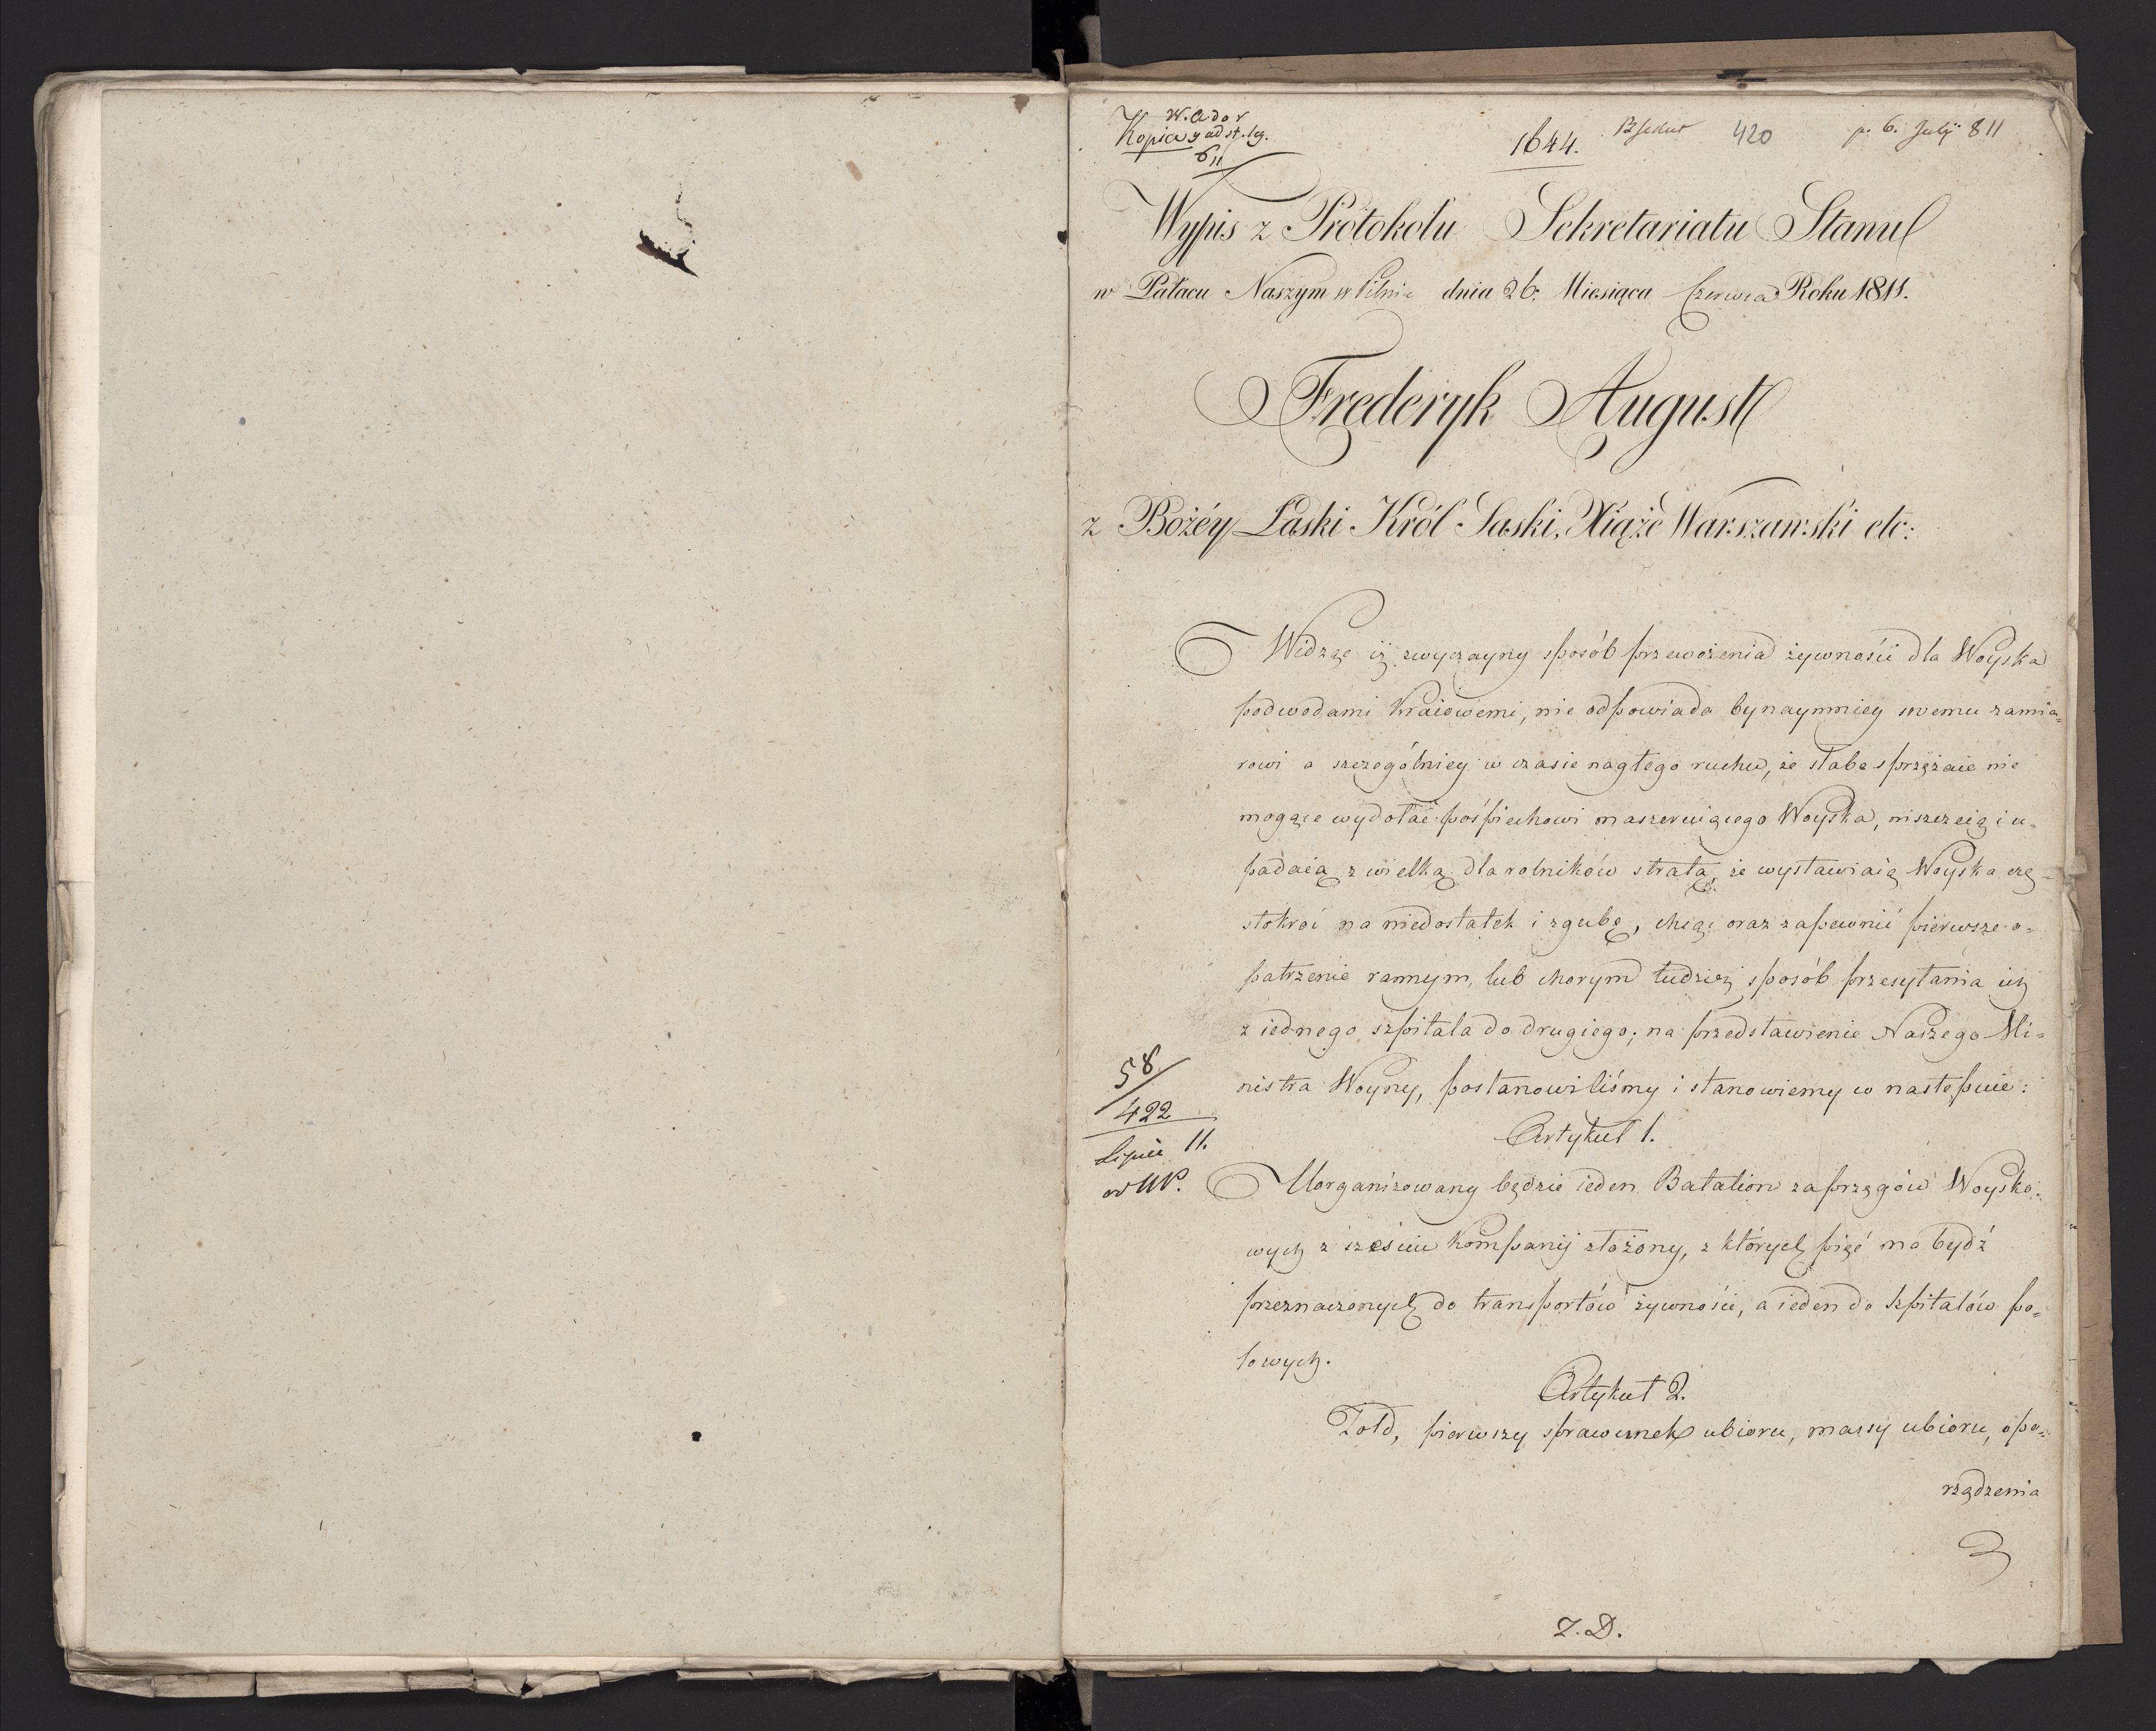 W. Ador
Kopia
611
1644.
420
p. 6. Julÿ 811
Wypis z Protokołu Sekretariatu Stanu
w Pałacu Naszym w Pilnic dnia 26. Miesiąca Czerwca Roku 1811.
Frederyk August
z Bożéy Łaski Król Saski, Xiąże Warszawski etc:
Widząc iż zwyczayny sposób przewożenia żywności dla Woyska
podwodami Kraiowemi, nie odpowiada bynaymniey swemu zamia=
rowi a szczególniey w czasie nagłego ruchu, że słabe sprzężaie nie
mogące wydołać pośpiechowi maszeruiącego Woyska, niszczeią i u=
padaią z wielką dla rolników stratą, że wystawiaią Woyska czę=
stokroć na niedostatek i zgubę, chcąc oraz zapewnić pierwsze o=
patrzenie rannym, lub chorym tudzież sposób przesyłania ich
z iednego szpitala do drugiego; na przedstawienie Naszego Mi=
nistra Woyny, postanowiliśmy i stanowiemy co następuie:
58
422
Lipca 11.
Artykuł 1.
Uorganizowany będzie ieden Batalion zaprzęgów Woysko=
wych z sześciu Kompanij złożony, z których pięć ma bydź
przeznaczonych do transportów żywności, a ieden do Szpitalów po=
lowych.
Artykuł 2.
Żołd, pierwszy sprawunek ubioru, massy ubioru, opo=
rządzenia
Z. D.